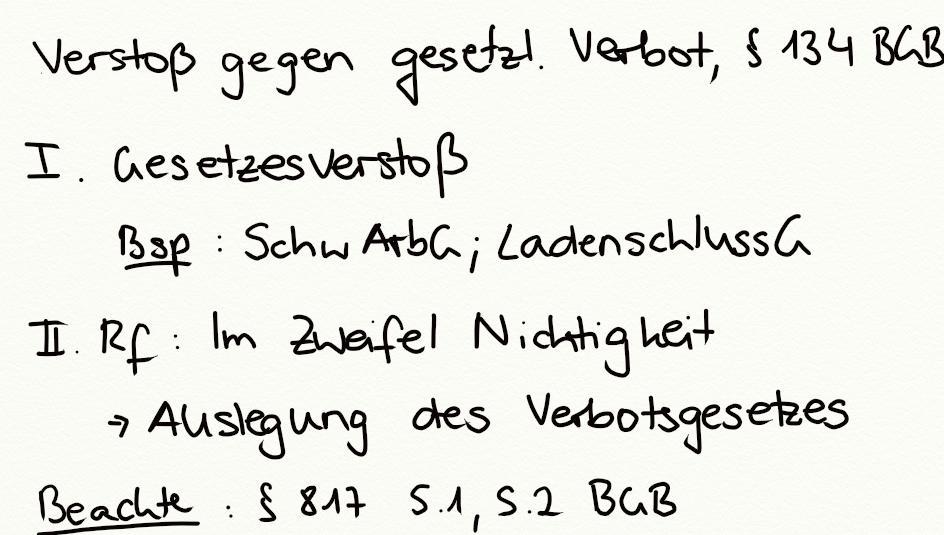 Verstoß gegen gesetzl. Verbot, § 134 BGB
I. Gesetzesverstoß
Bsp : SchwArbG ; LadenschlussG
II. Rf : Im Zweifel Nichtigkeit
→ Auslegung des Verbotsgesetzes
Beachte : § 817 S.1, S.2 BGB